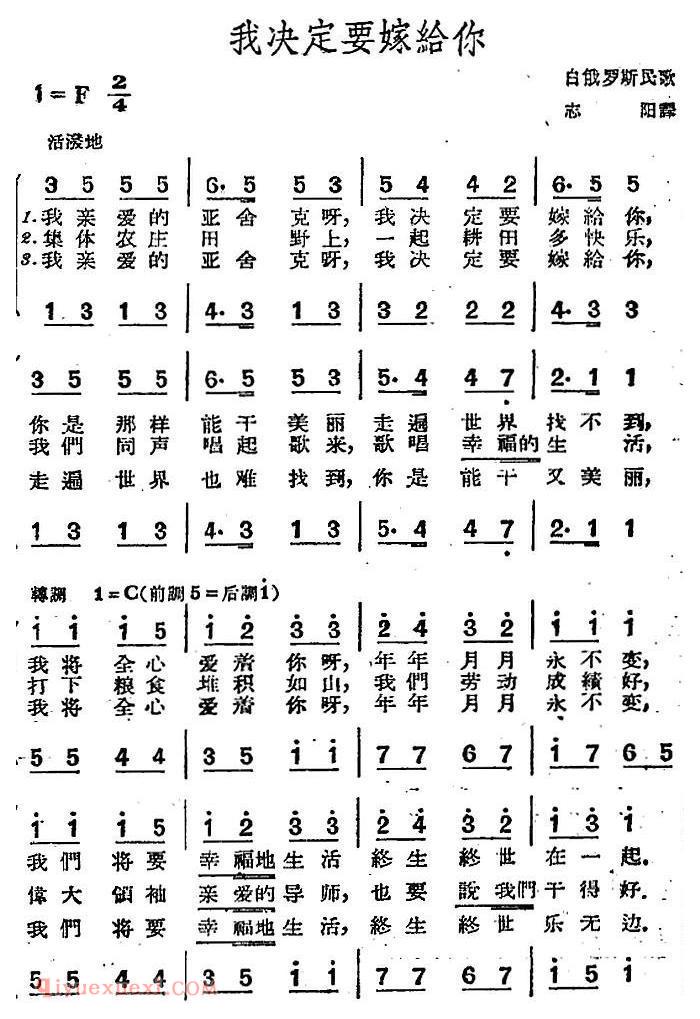 我决定要嫁給你
白俄罗斯民歌
1=F 2/4
志 阳譯
活潑地
3 5 5 5 | 6· 5 5 3 | 5 4 4 2 | 6· 5 5
1.我亲爱的亚舍克呀,我决定要嫁給你,
2.集体农庄田野上,一起耕田多快乐,
3.我亲爱的亚舍克呀,我决定要嫁給你,
1 3 1 3 | 4· 3 1 3 | 3 2 2 2 | 4· 3 3
3 5 5 5 | 6· 5 5 3 | 5· 4 4 7 | 2· 1 1
你是那样能干美丽走遍世界找不到,
我們同声唱起歌来,歌唱幸福的生活,
走遍世界也难找到,你是能干又美丽,
1 3 1 3 | 4· 3 1 3 | 5· 4 4 7 | 2· 1 1
轉調 1=C(前調5=后調i)
1 1 1 5 | 1 2 3 3 | 2 4 3 2 | 1 1 1
我将全心爱着你呀,年年月月永不变,
打下粮食堆积如山,我們劳动成績好,
我将全心爱着你呀,年年月月永不变.
5 5 4 4 | 3 5 1 1 | 7 7 6 7 | 1 7 6 5
1 1 1 5 | 1 2 3 3 | 2 4 3 2 | 1 3 1
我們将要幸福地生活終生終世在一起.
偉大領袖亲爱的导师,也要說我們干得好.
我們将要幸福地生活,終生終世乐无边.
5 5 4 4 | 3 5 1 1 | 7 7 6 7 | 1 5 1
qiyuexuexi.com